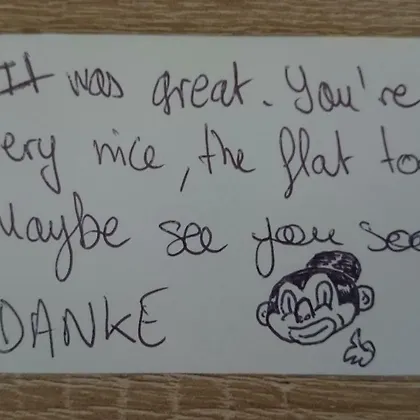 It was great. You're
ery nice, the flat to
Maybe see you soo
DANKE